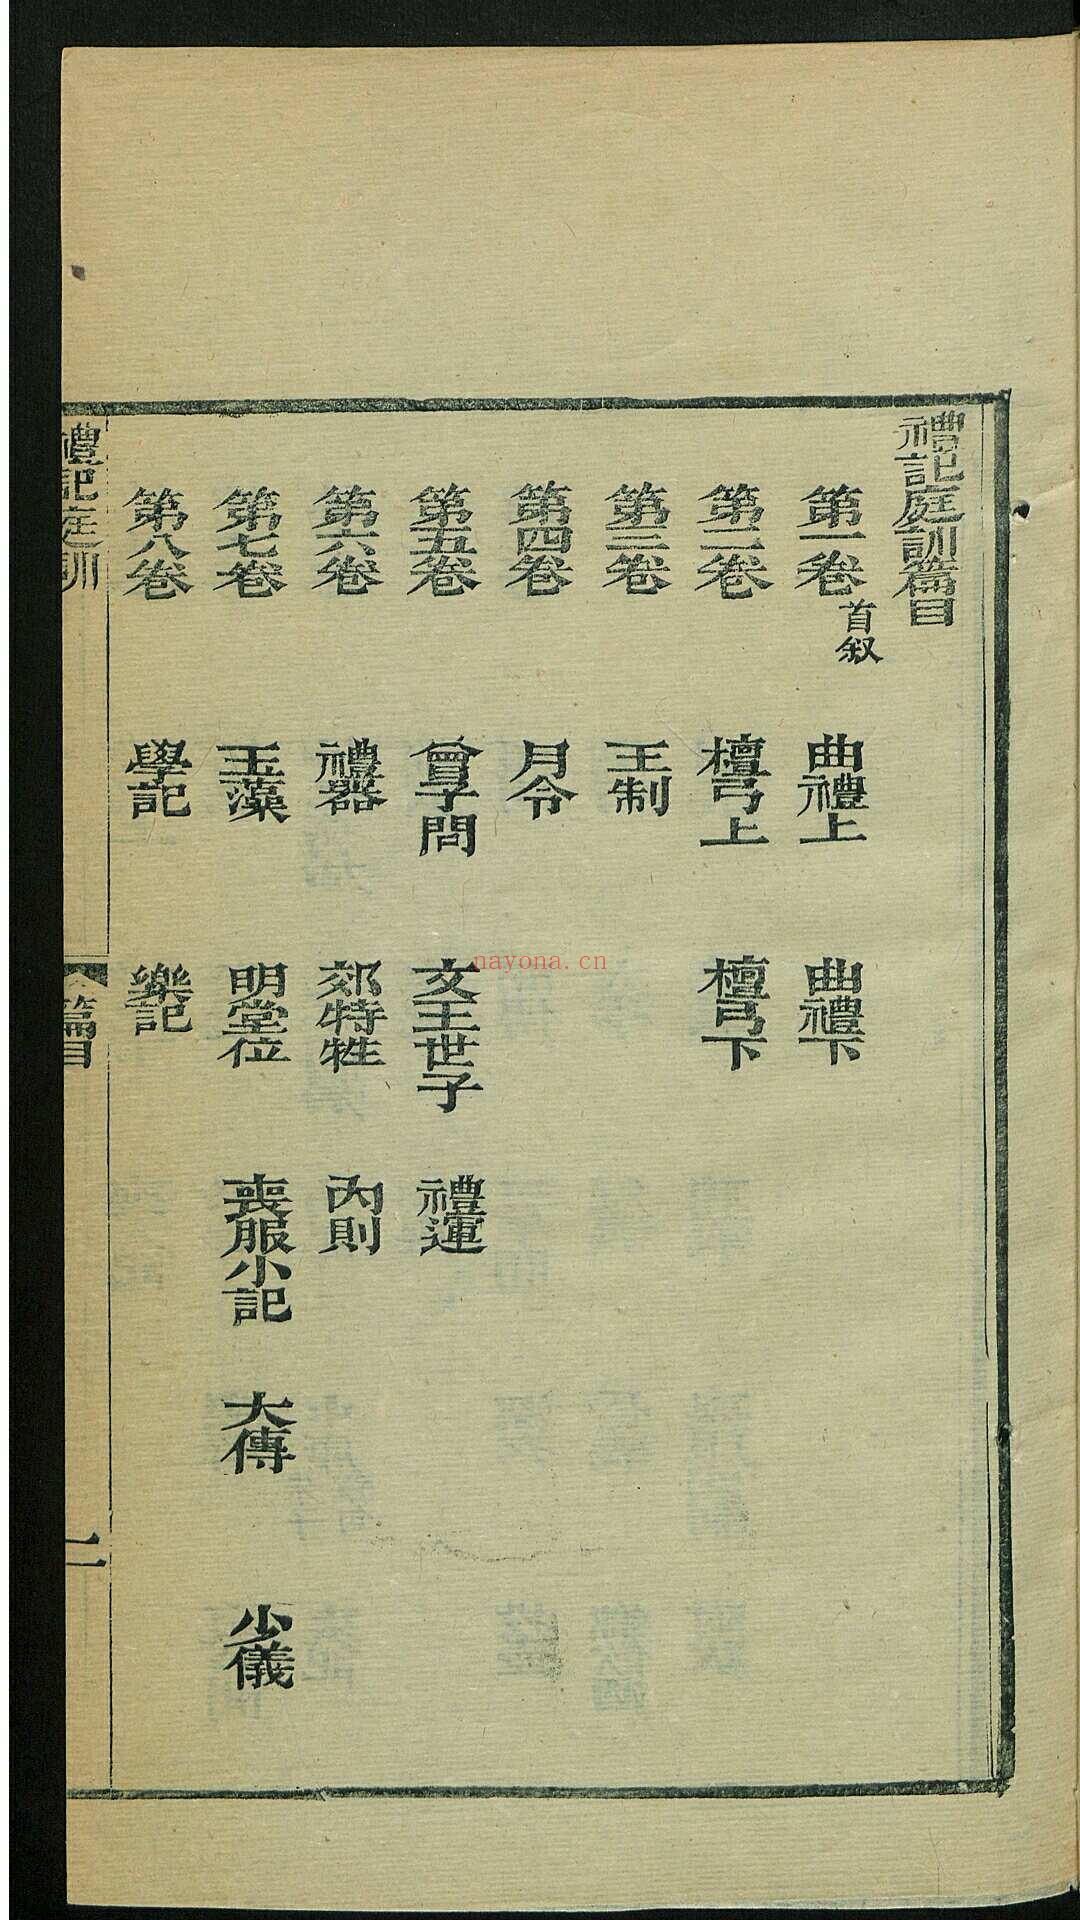 禮記庭訓篇目
第一卷 首叙 曲禮上 曲禮下
第二卷 檀弓上 檀弓下
第三卷 王制
第四卷 月令
第五卷 曾子問 文王世子 禮運
第六卷 禮器 郊特牲 內則
第七卷 玉藻 明堂位 喪服小記 大傳 少儀
第八卷 學記 樂記
禮記庭訓 篇目 一
nayona.cn